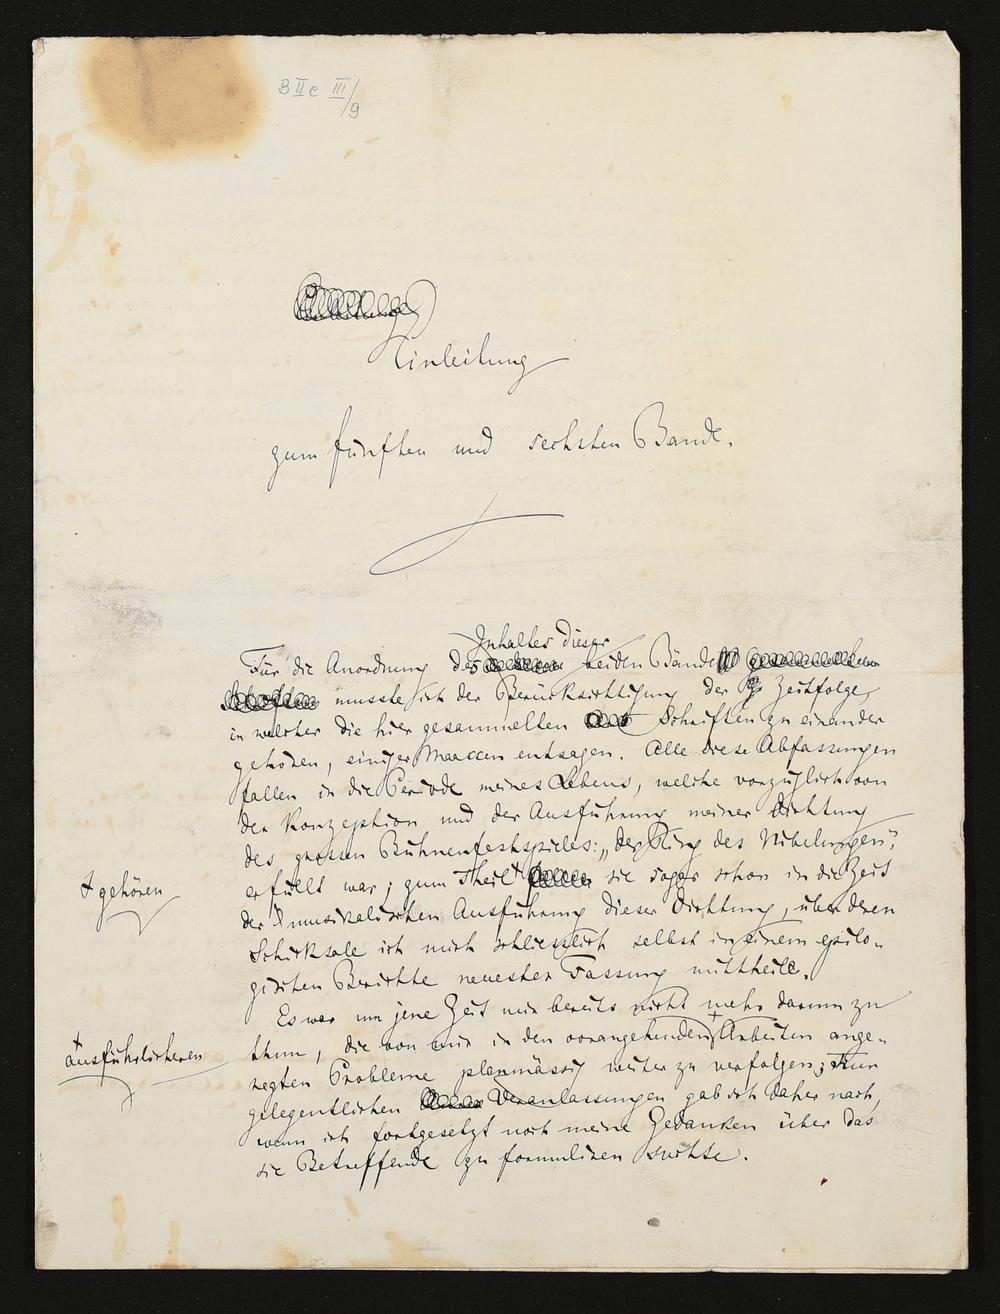 B II c III/9
Einleitung
zum fünften und sechsten Bande.
Inhaltes dieser
Für die Anordnung des beiden Bände
musste ich der Berücksichtigung der Zeitfolge,
in welcher die hier gesammelten Schriften zu einander
gehören, einiger Maassen entsagen. Alle diese Abfassungen
fallen in die Periode meines Lebens, welche vorzüglich von
der Konzeption und der Ausführung meiner Dichtung
des grossen Bühnenfestspieles: „der Ring des Nibelungen",
erfüllt war; zum Theil + sie sogar schon in die Zeit
+ gehören
der musikalischen Ausführung dieser Dichtung, über deren
Schicksale ich mich schliesslich selbst in einem epilo-
gischen Berichte neuester Fassung mittheile.
Es war um jene Zeit mir bereits nicht mehr darum zu
thun, die von mir in den vorangehenden + Arbeiten ange-
+ ausführlicheren
regten Probleme planmässig weiter zu verfolgen; nur
gelegentlichen Veranlassungen gab ich daher nach,
wenn ich fortgesetzt noch meine Gedanken über das
sie Betreffende zu formuliren suchte.